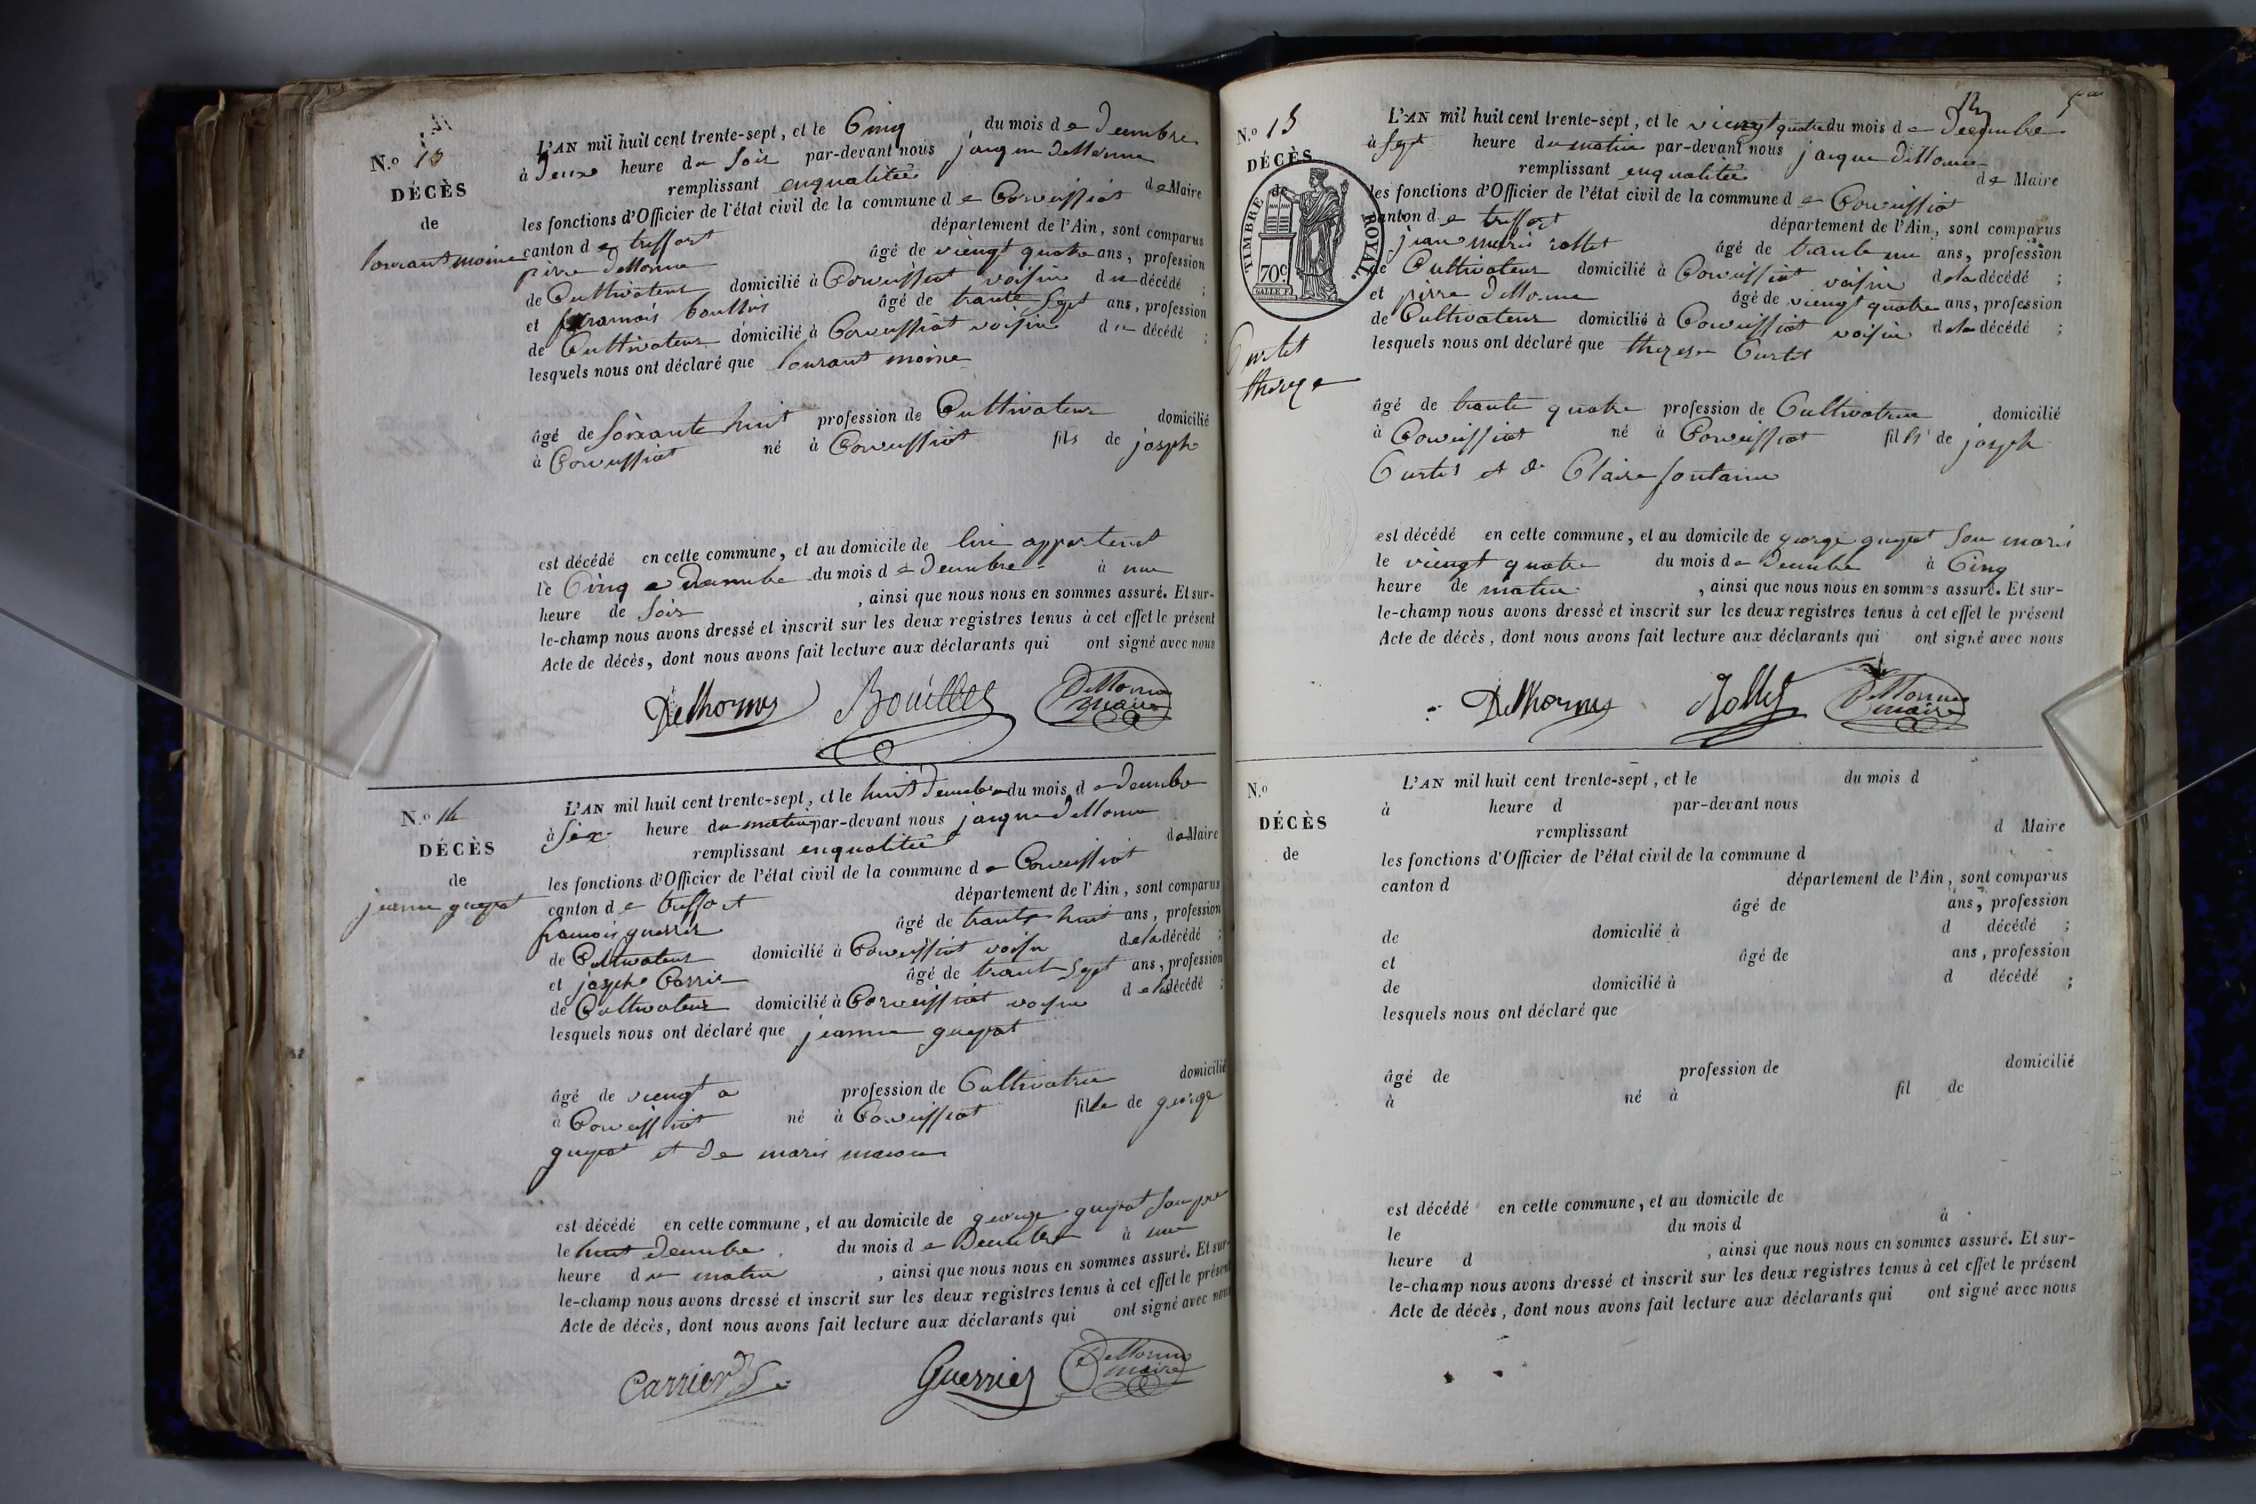 N.º 13
DÉCÈS
de
lourant moine
L'AN mil huit cent trente-sept, et le Cinq du mois de Decembre
à Deux heure du soir par-devant nous jacque delhorme
remplissant enqualitée de Maire
les fonctions d'Officier de l'état civil de la commune de Corveissiat
canton de treffort département de l'Ain, sont comparus
pierre delhorme âgé de viengt quatre ans, profession
de Cultivateur domicilié à Corveissiat voisin du décédé ;
et framois bouilles âgé de trante sept ans, profession
de Cultivateur domicilié à Corveissiat voisin du décédé ;
lesquels nous ont déclaré que lourant moine
âgé de soixante huit profession de Cultivateur domicilié
à Corveissiat né à Corveissiat fils de joseph
est décédé en cette commune, et au domicile de lui appartenet
le Cinq Decembre du mois de Decembre à une
heure de soir, ainsi que nous nous en sommes assuré. Et sur-
le-champ nous avons dressé et inscrit sur les deux registres tenus à cet effet le présent
Acte de décès, dont nous avons fait lecture aux déclarants qui ont signé avec nous
Delhorme Bouilles Delhorme
maire
N.º 14
DÉCÈS
de
jeanne guepat
L'AN mil huit cent trente-sept, et le huit Decembre du mois de Decembre
à Six heure du matin par-devant nous jacque delhorme
remplissant enqualitée de Maire
les fonctions d'Officier de l'état civil de la commune de Corveissiat
canton de treffort département de l'Ain, sont comparus
framois guerrier âgé de trante huit ans, profession
de Cultivateur domicilié à Corveissiat voisin de la décédé ;
et joseph Carrier âgé de trante sept ans, profession
de Cultivateur domicilié à Corveissiat voisin de la décédé ;
lesquels nous ont déclaré que jeanne guepat
âgé de viengt a profession de Cultivatrice domicilié
à Corveissiat né à Corveissiat fille de george
guepat et de marie
est décédé en cette commune, et au domicile de george guepat son pere
le huit Decembre du mois de Decembre à une
heure du matin, ainsi que nous nous en sommes assuré. Et sur-
le-champ nous avons dressé et inscrit sur les deux registres tenus à cet effet le présent
Acte de décès, dont nous avons fait lecture aux déclarants qui ont signé avec nous
Carrier Guerrier Delhorme
maire
N.º 15
DÉCÈS
de
TIMBRE ROYAL.
70c.
Curtet
therese
L'AN mil huit cent trente-sept, et le viengt quatre du mois de Decembre
à Sept heure du matin par-devant nous jacque delhorme
remplissant enqualitée de Maire
les fonctions d'Officier de l'état civil de la commune de Corveissiat
canton de treffort département de l'Ain, sont comparus
jean marie rollet âgé de trante un ans, profession
de Cultivateur domicilié à Corveissiat voisin de la décédé ;
et pierre delhorme âgé de viengt quatre ans, profession
de Cultivateur domicilié à Corveissiat voisin de la décédé ;
lesquels nous ont déclaré que therese Curtet
âgé de trante quatre profession de Cultivatrice domicilié
à Corveissiat né à Corveissiat fill de joseph
Curtet et de Claire fontaine
est décédé en cette commune, et au domicile de george guepat son maris
le viengt quatre du mois de Decembre à Cinq
heure de matin, ainsi que nous nous en sommes assuré. Et sur-
le-champ nous avons dressé et inscrit sur les deux registres tenus à cet effet le présent
Acte de décès, dont nous avons fait lecture aux déclarants qui ont signé avec nous
Delhorme Rollet Delhorme
maire
N.º
DÉCÈS
de
L'AN mil huit cent trente-sept, et le du mois d
à heure d par-devant nous
remplissant d Maire
les fonctions d'Officier de l'état civil de la commune d
canton d département de l'Ain, sont comparus
âgé de ans, profession
de domicilié à d décédé ;
et âgé de ans, profession
de domicilié à d décédé ;
lesquels nous ont déclaré que
âgé de profession de domicilié
à né à fil de
est décédé en cette commune, et au domicile de
le du mois d à
heure d , ainsi que nous nous en sommes assuré. Et sur-
le-champ nous avons dressé et inscrit sur les deux registres tenus à cet effet le présent
Acte de décès, dont nous avons fait lecture aux déclarants qui ont signé avec nous